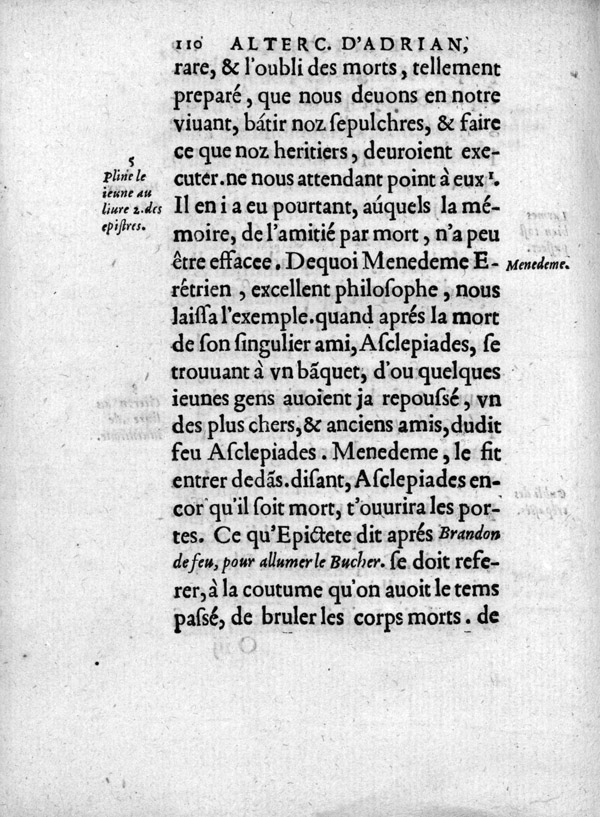 110 ALTERC. D'ADRIAN,
rare, & l'oubli des morts, tellement
preparé, que nous deuons en notre
viuant, bátir noz ſepulchres, & faire
ce que noz heritiers, deuroient exe-
cuter. ne nous attendant point à eux ¹.
5
Pline le
ieune au
liure 2. des
epiſtres.
Il en i a eu pourtant, aúquels la mé-
moire, de l'amitié par mort, n'a peu
être effacee. Dequoi Menedeme E-
Menedeme.
rétrien, excellent philoſophe, nous
laiſſa l'exemple. quand aprés la mort
de ſon ſingulier ami, Aſclepiades, ſe
trouuant à vn bãquet, d'ou quelques
ieunes gens auoient ja repouſſé, vn
des plus chers, & anciens amis, dudit
feu Aſclepiades. Menedeme, le fit
entrer dedãs. diſant, Aſclepiades en-
cor qu'il ſoit mort, t'ouurira les por-
tes. Ce qu'Epictete dit aprés Brandon
de feu, pour allumer le Bucher. ſe doit refe-
rer, à la coutume qu'on auoit le tems
paſſé, de bruler les corps morts. de